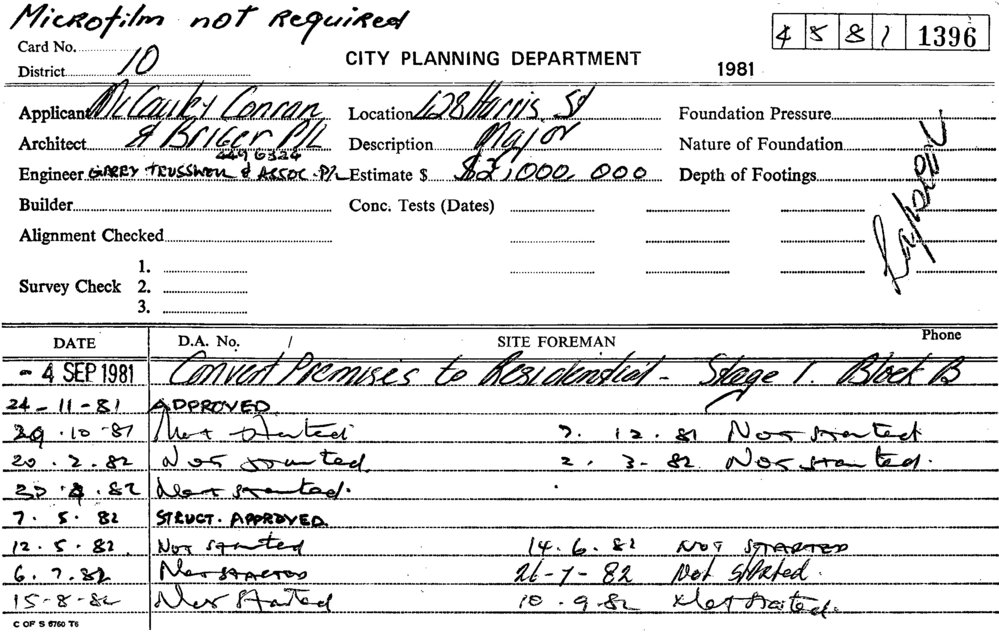 Microfilm not Required
4 5 8 1 1396
Card No.
District 10
CITY PLANNING DEPARTMENT
1981
Applicant McCauley Conran Location 428 Harris St Foundation Pressure
Architect & BRIGER P/L Description Major Nature of Foundation
449 6324
Engineer GARRY TRUSSWELL & ASSOC. P/L Estimate $ $2,000,000 Depth of Footings
Builder Conc. Tests (Dates)
Alignment Checked
1.
Survey Check 2.
3.
DATE D.A. No. / SITE FOREMAN Phone
- 4 SEP 1981 Convert Premises to Residential - Stage 1. Block B
24-11-81 APPROVED.
29.10-81 Not started 7. 12. 81 Not started
20.2.82 Not started. 2. 3-82 Not started.
.82 Not started.
7. 5. 82 STRUCT. APPROVED.
12.5.82. Not started 14.6.82 NOT STARTED
6.7.82 Not STARTED 26-7-82 Not started.
15-8-82 Not started 10.9.82 Not started.
C OF S 6760 T6